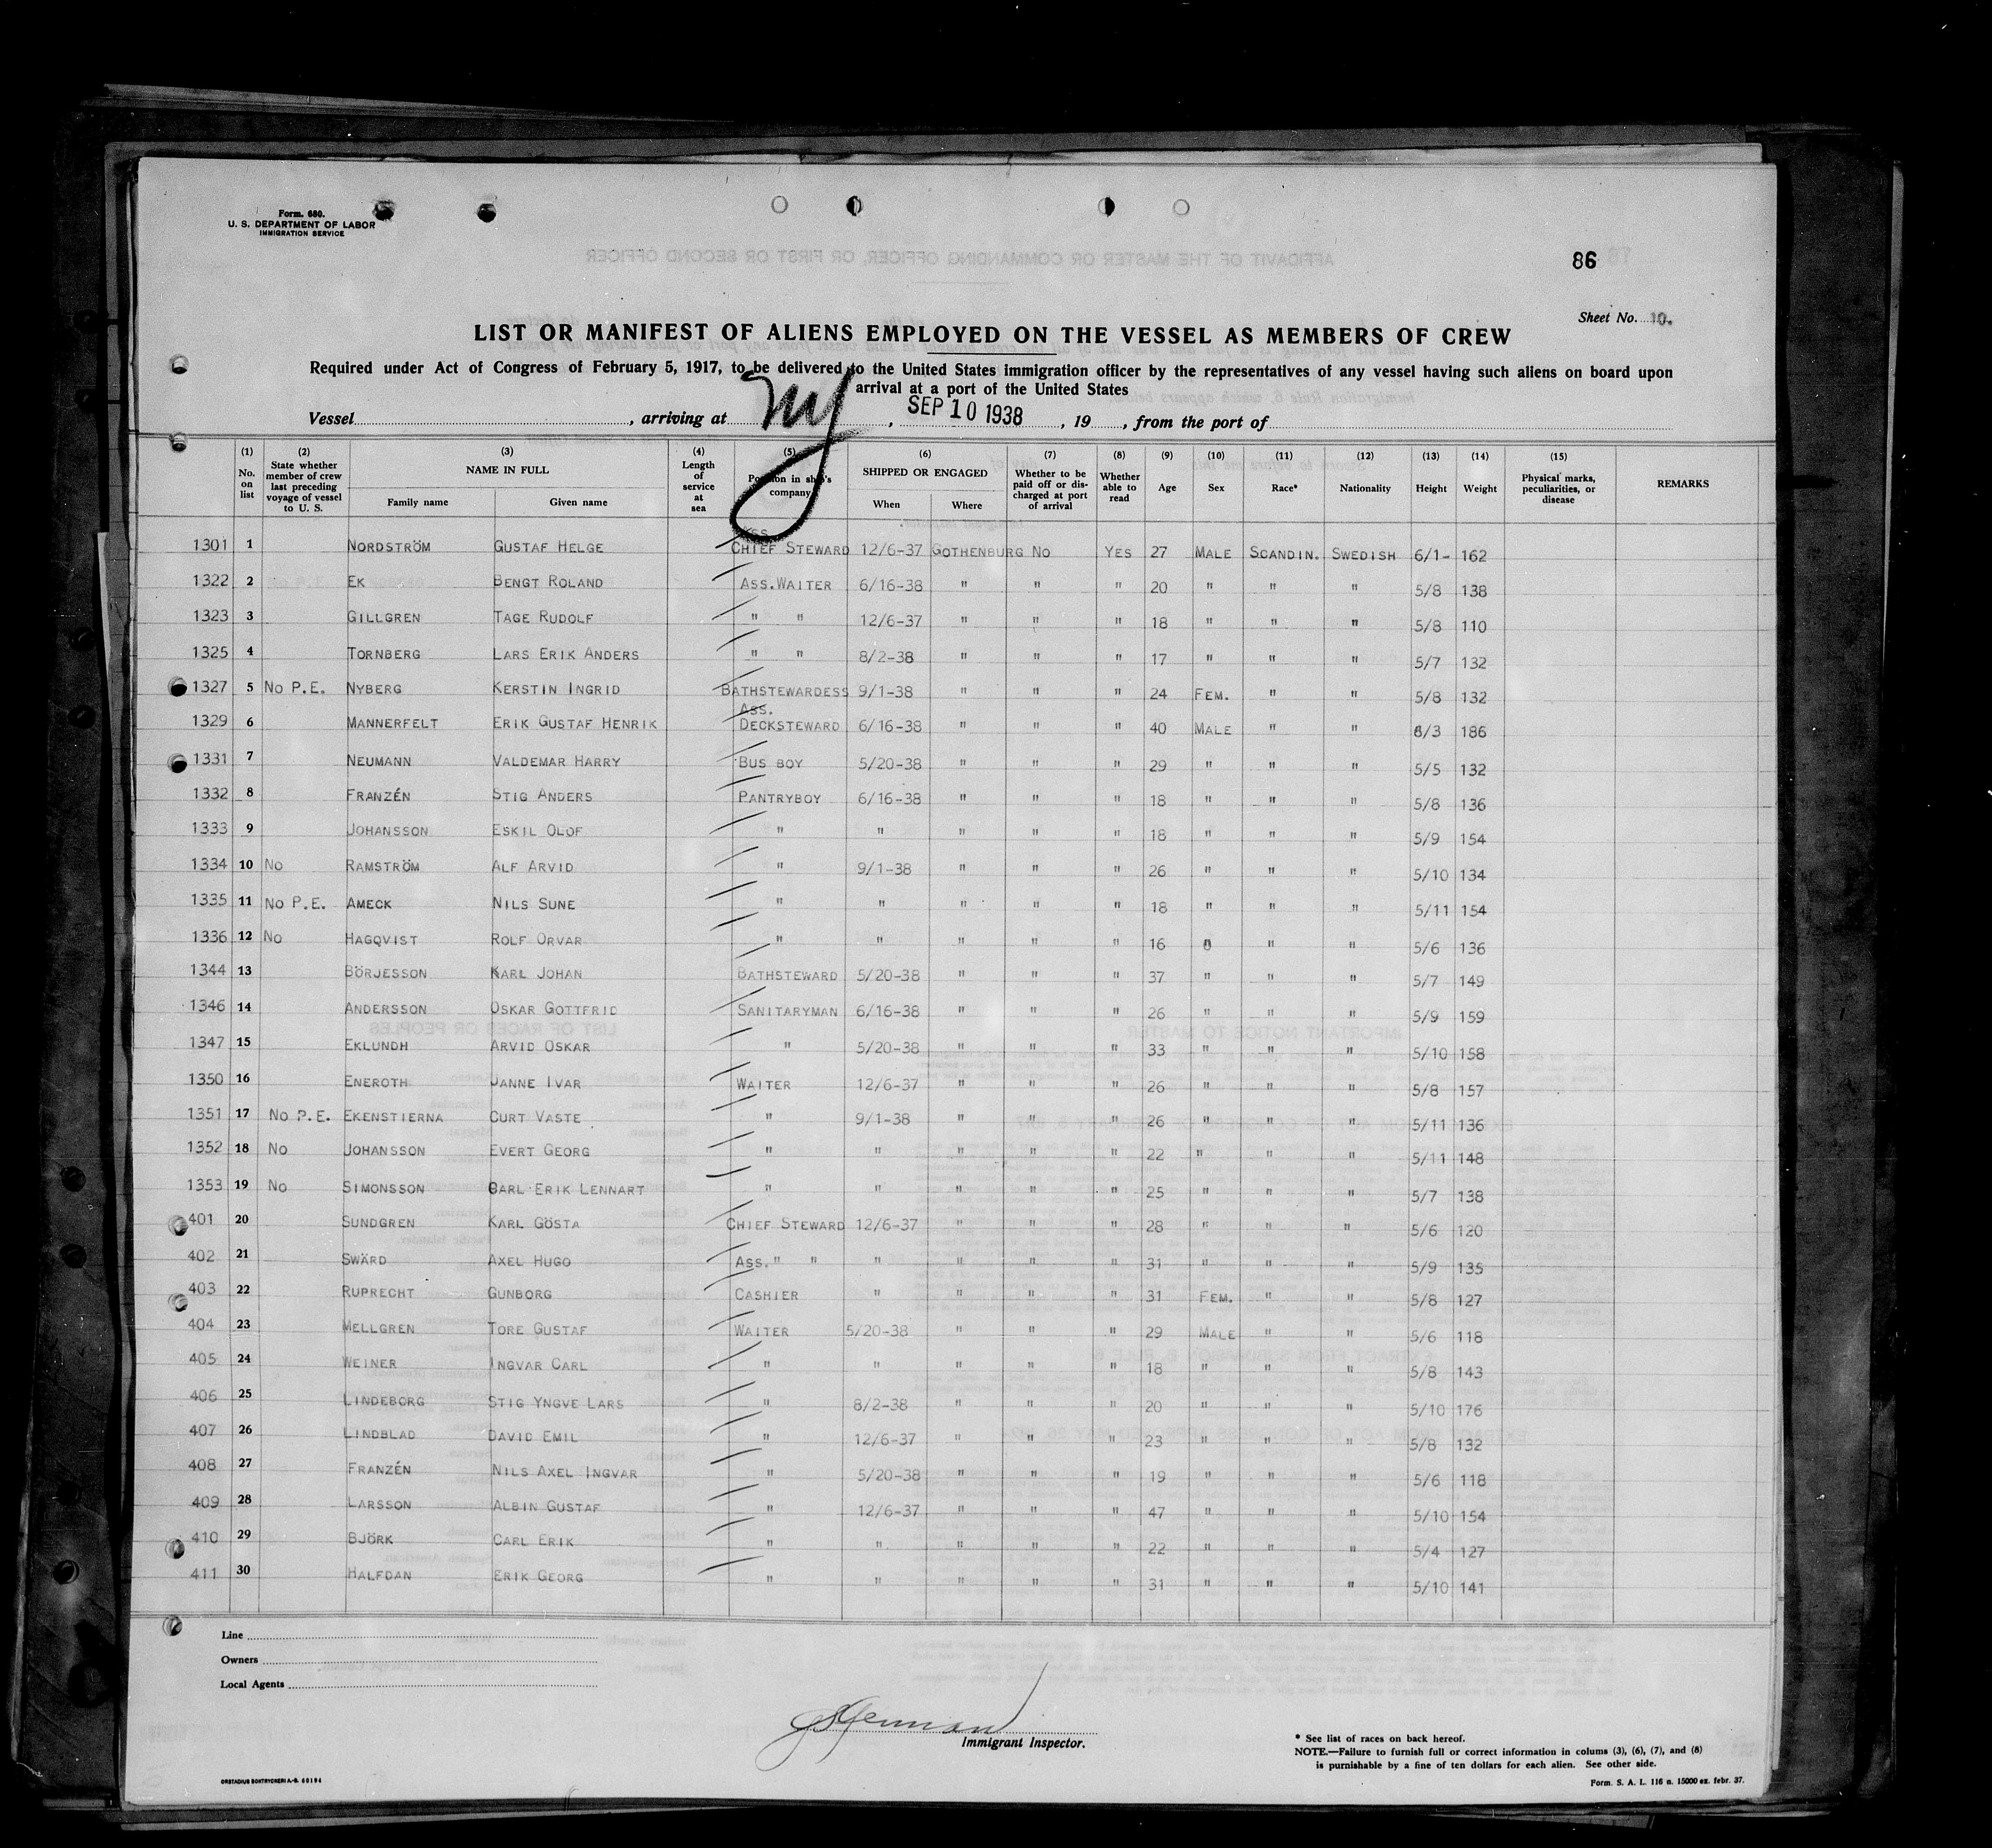 Form. 680.
U. S. DEPARTMENT OF LABOR
IMMIGRATION SERVICE
86
Sheet No. 10.
LIST OR MANIFEST OF ALIENS EMPLOYED ON THE VESSEL AS MEMBERS OF CREW
Required under Act of Congress of February 5, 1917, to be delivered to the United States immigration officer by the representatives of any vessel having such aliens on board upon
arrival at a port of the United States
Vessel , arriving at NY , SEP 10 1938 , 19 , from the port of
(1) No. on list (2) State whether member of crew last preceding voyage of vessel to U. S. (3) NAME IN FULL Family name Given name (4) Length of service at sea (5) Position in ship's company (6) SHIPPED OR ENGAGED When Where (7) Whether to be paid off or discharged at port of arrival (8) Whether able to read (9) Age (10) Sex (11) Race* (12) Nationality (13) Height (14) Weight (15) Physical marks, peculiarities, or disease REMARKS
1301 1 NORDSTRÖM GUSTAF HELGE ASS. CHIEF STEWARD 12/6-37 GOTHENBURG NO YES 27 MALE SCANDIN. SWEDISH 6/1- 162
1322 2 EK BENGT ROLAND ASS.WAITER 6/16-38 " " " 20 " " " 5/8 138
1323 3 GILLGREN TAGE RUDOLF " " 12/6-37 " " " 18 " " " 5/8 110
1325 4 TORNBERG LARS ERIK ANDERS " " 8/2-38 " " " 17 " " " 5/7 132
1327 5 NO P.E. NYBERG KERSTIN INGRID BATHSTEWARDESS 9/1-38 " " " 24 FEM. " " 5/8 132
1329 6 MANNERFELT ERIK GUSTAF HENRIK ASS. DECKSTEWARD 6/16-38 " " " 40 MALE " " 6/3 186
1331 7 NEUMANN VALDEMAR HARRY BUS BOY 5/20-38 " " " 29 " " " 5/5 132
1332 8 FRANZÉN STIG ANDERS PANTRYBOY 6/16-38 " " " 18 " " " 5/8 136
1333 9 JOHANSSON ESKIL OLOF " " " " " 18 " " " 5/9 154
1334 10 NO RAMSTRÖM ALF ARVID " 9/1-38 " " " 26 " " " 5/10 134
1335 11 NO P.E. AMECK NILS SUNE " " " " " 18 " " " 5/11 154
1336 12 NO HAGQVIST ROLF ORVAR " " " " " 16 " " " 5/6 136
1344 13 BÖRJESSON KARL JOHAN BATHSTEWARD 5/20-38 " " " 37 " " " 5/7 149
1346 14 ANDERSSON OSKAR GOTTFRID SANITARYMAN 6/16-38 " " " 26 " " " 5/9 159
1347 15 EKLUNDH ARVID OSKAR " 5/20-38 " " " 33 " " " 5/10 158
1350 16 ENEROTH JANNE IVAR WAITER 12/6-37 " " " 26 " " " 5/8 157
1351 17 NO P.E. EKENSTIERNA CURT VASTE " 9/1-38 " " " 26 " " " 5/11 136
1352 18 NO JOHANSSON EVERT GEORG " " " " " 22 " " " 5/11 148
1353 19 NO SIMONSSON CARL ERIK LENNART " " " " " 25 " " " 5/7 138
401 20 SUNDGREN KARL GÖSTA CHIEF STEWARD 12/6-37 " " " 28 " " " 5/6 120
402 21 SWÄRD AXEL HUGO ASS." " " " " " 31 " " " 5/9 135
403 22 RUPRECHT GUNBORG CASHIER " " " " 31 FEM. " " 5/8 127
404 23 MELLGREN TORE GUSTAF WAITER 5/20-38 " " " 29 MALE " " 5/6 118
405 24 WEINER INGVAR CARL " " " " " 18 " " " 5/8 143
406 25 LINDEBORG STIG YNGVE LARS " 8/2-38 " " " 20 " " " 5/10 176
407 26 LINDBLAD DAVID EMIL " 12/6-37 " " " 23 " " " 5/8 132
408 27 FRANZÉN NILS AXEL INGVAR " 5/20-38 " " " 19 " " " 5/6 118
409 28 LARSSON ALBIN GUSTAF " 12/6-37 " " " 47 " " " 5/10 154
410 29 BJÖRK CARL ERIK " " " " " 22 " " " 5/4 127
411 30 HALFDAN ERIK GEORG " " " " " 31 " " " 5/10 141
Line
Owners
Local Agents
Immigrant Inspector.
* See list of races on back hereof.
NOTE.—Failure to furnish full or correct information in colums (3), (6), (7), and (8)
is punishable by a fine of ten dollars for each alien. See other side.
ORSTADIUS BOKTRYCKERI A.-B. 60194
Form. S. A. L. 116 n. 15000 ex. febr. 37.